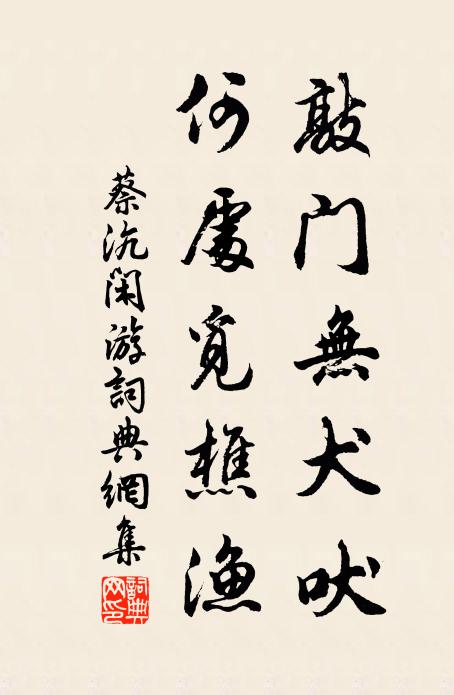 敲门無犬吠
何處覓樵漁
蔡沆閑游詞典網集
詞典网印